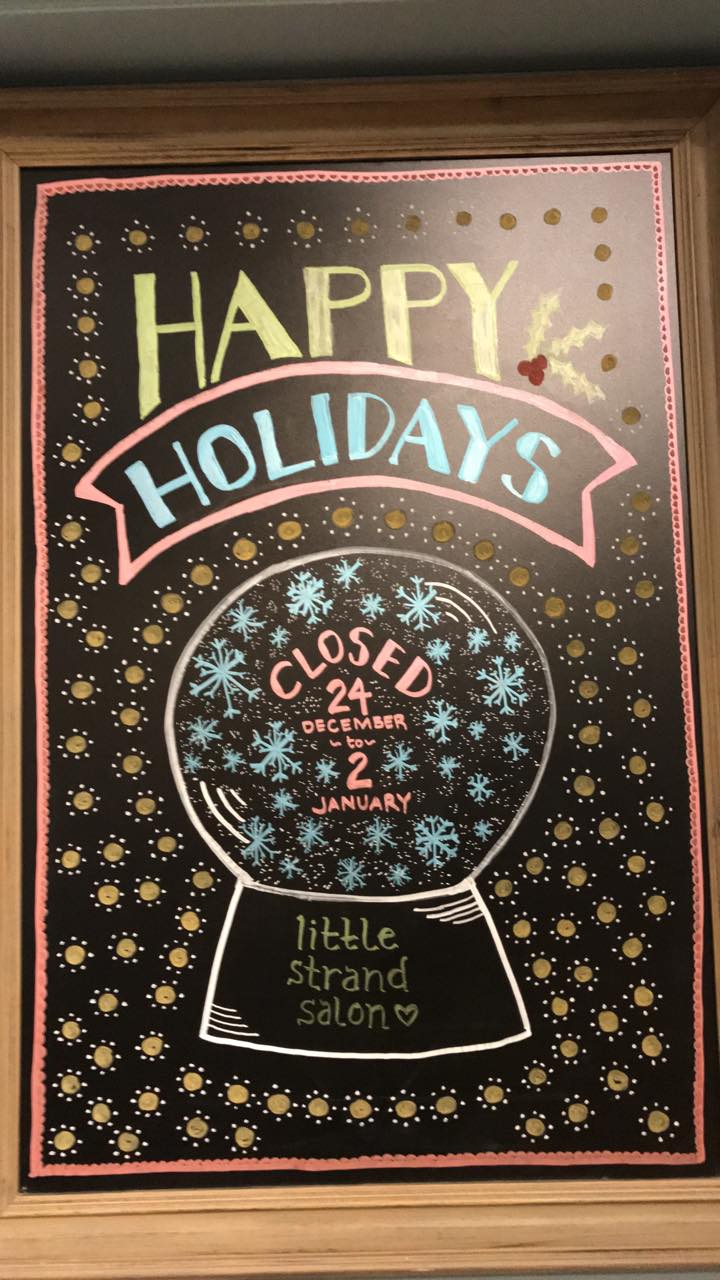 HAPPY
HOLIDAYS
CLOSED
24
DECEMBER
~to~
2
JANUARY
little
strand
salon♡